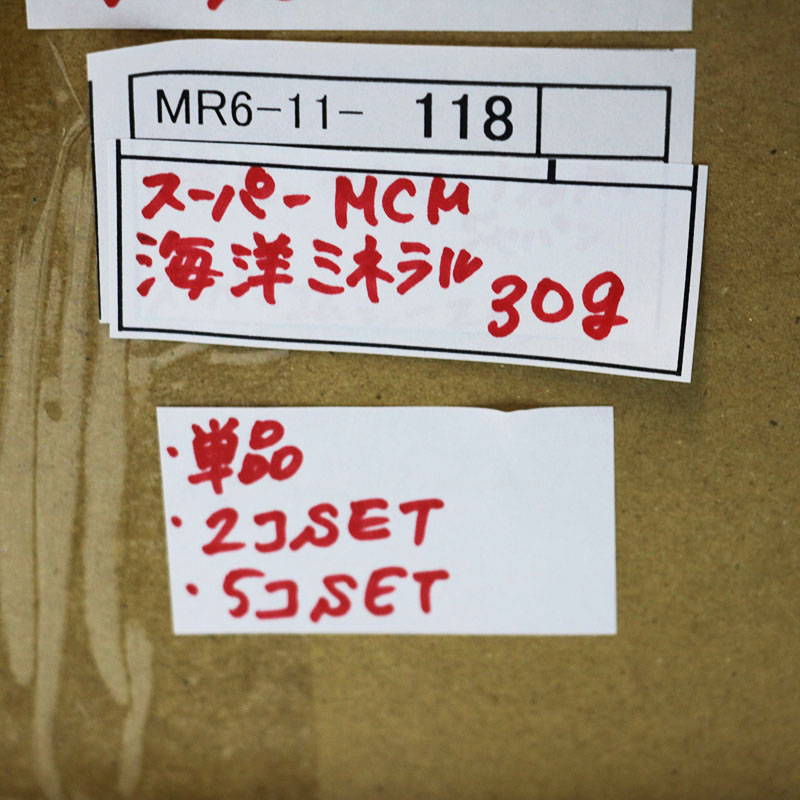 MR6-11- 118
スーパー MCM
海洋ミネラル 30g
・単品
・2コSET
・5コSET